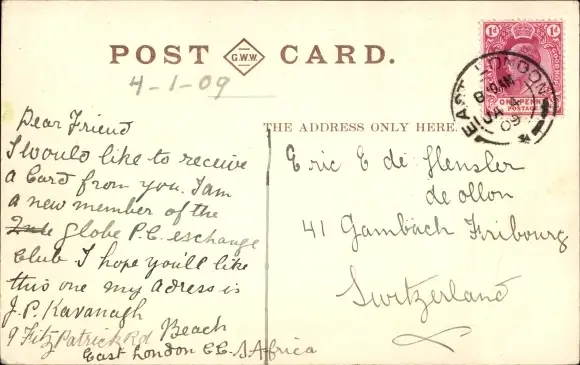 POST G.W.W. CARD.
4-1-09
1d 1d
GOOD HOPE
ONE PENNY
POSTAGE
EAST LONDON
JA 4
09
THE ADDRESS ONLY HERE.
Dear Friend
I would like to receive
a Card from you. I am
a new member of the
globe P.C. exchange
Club I hope you'll like
this one my adress is
J.P. Kavanagh
9 Fitz Patrick Rd Beach
East London C.C. S Africa
Eric E de Hensler
de ollon
41 Gambach Fribourg
Switzerland